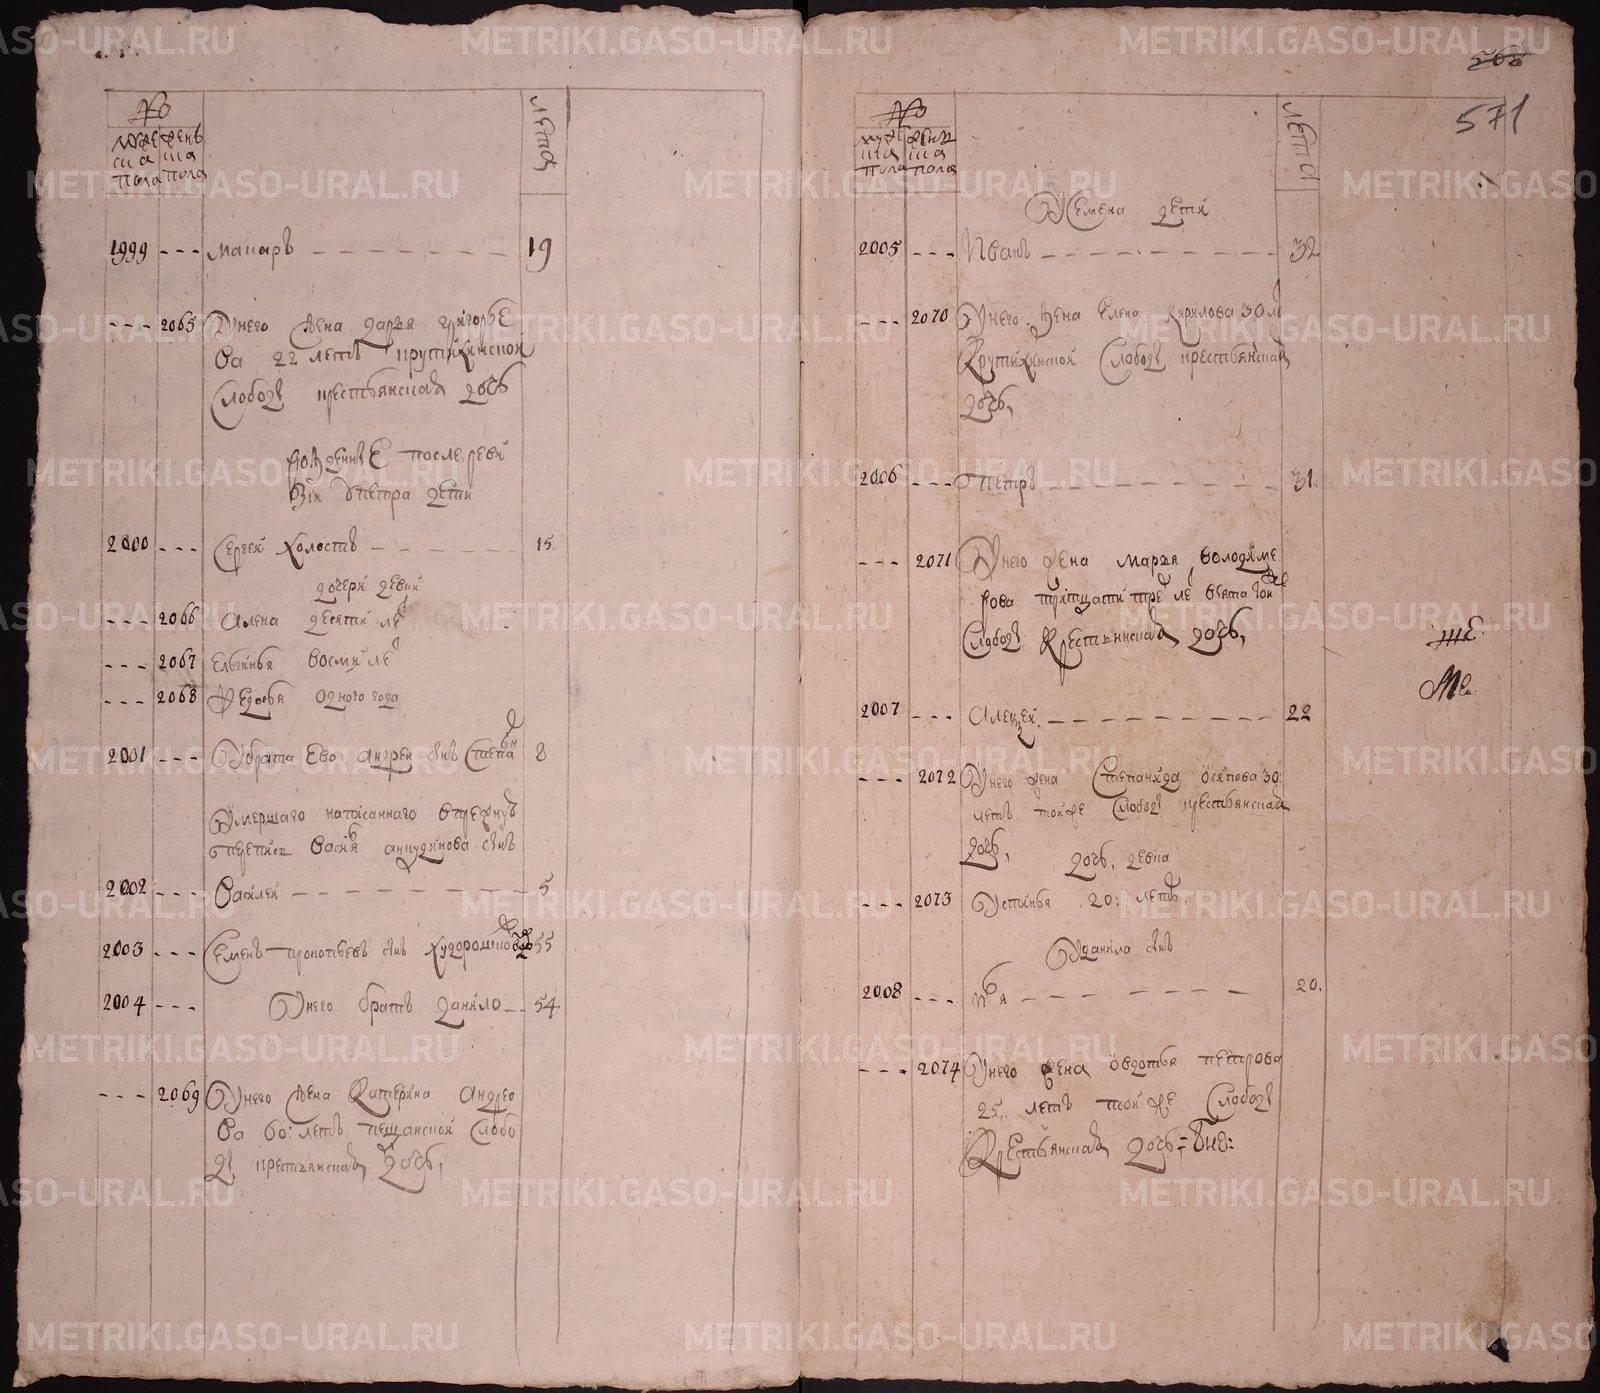 №
муже
ска
пола
женъ
ска
пола
лета
1999 --- макаръ 19
--- 2065 Унего жена дарья григорье
ва 22 летъ крутихинской
слободы крестьянская дочь
рожденные после реви
зии упетра дети
2000 --- сергей холостъ 15
дочери девки
--- 2066 алена десяти ле
--- 2067
восми ле
--- 2068 Федосья одного года
2001 --- Убрата ево андрея снъ степанъ 8
Умершаго написаннаго впрежную
перепись
снъ
2002 --- василей 5
2003 --- семенъ прокопьевъ снъ
55
2004 --- Унего братъ данило 54
--- 2069 Унего жена катерина андрее
ва 60: летъ пещанской слобо
ды крестьянская дочь,
568
571
№
муже
ска
пола
женъ
ска
пола
лета
Усемена дети
2005 --- иванъ 32
--- 2070 Унего жена елена кирилова 30 ле
крутихинской слободы крестьянская
дочь,
2006 --- петръ 31
--- 2071 Унего жена марья володиме
рова тритцати тре ле
слободы крестьянская дочь,
2007 --- алексей 22
--- 2072 Унего жена степанида осипова 30:
летъ тойже слободы крестьянская
дочь,
дочь, девка
--- 2073 Устинья 20: летъ,
Уданило снъ
2008 ---
20.
--- 2074 Унего жена овдотья петрова
25. летъ тойже слободы
крестьянская дочь,
METRIKI.GASO-URAL.RU